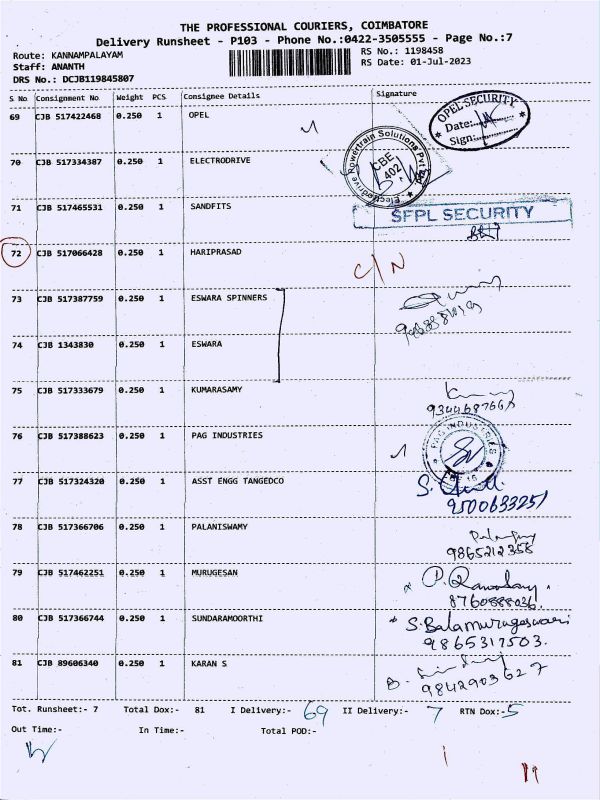 THE PROFESSIONAL COURIERS, COIMBATORE
Delivery Runsheet - P103 - Phone No.:0422-3505555 - Page No.:7
Route: KANNAMPALAYAM
Staff: ANANTH
DRS No.: DCJB119845807
RS No.: 1198458
RS Date: 01-Jul-2023
S No Consignment No Weight PCS Consignee Details Signature
69 CJB 517422468 0.250 1 OPEL
OPEL SECURITY
Date:
Sign:
70 CJB 517334387 0.250 1 ELECTRODRIVE
Electrodrive Powertrain Solutions Pvt
CBE
402
71 CJB 517465531 0.250 1 SANDFITS
SFPL SECURITY
72 CJB 517066428 0.250 1 HARIPRASAD
C/N
73 CJB 517387759 0.250 1 ESWARA SPINNERS
74 CJB 1343830 0.250 1 ESWARA
75 CJB 517333679 0.250 1 KUMARASAMY
76 CJB 517388623 0.250 1 PAG INDUSTRIES
PAG INDUSTRIES
77 CJB 517324320 0.250 1 ASST ENGG TANGEDCO
9500633251
78 CJB 517366706 0.250 1 PALANISWAMY
9865212358
79 CJB 517462251 0.250 1 MURUGESAN
8760888036.
80 CJB 517366744 0.250 1 SUNDARAMOORTHI
S. Balamurugeswari
9865317503.
81 CJB 89606340 0.250 1 KARAN S
9842903627
Tot. Runsheet:- 7 Total Dox:- 81 I Delivery:- 69 II Delivery:- 7 RTN Dox:- 5
Out Time:- In Time:- Total POD:-